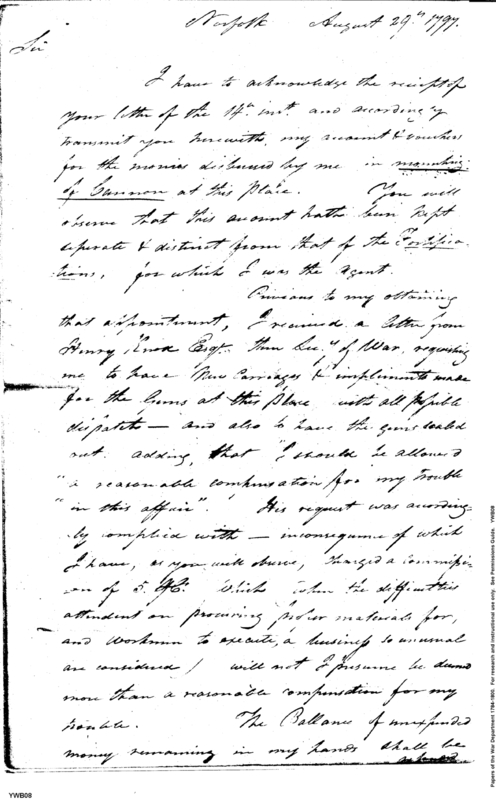 Norfolk August 29th 1797.
Sir
I have to acknowledge the receipt of
your letter of the 14th inst. and accordingly
transmit you herewith, my account & vouchers
for the monies disbursed by me in mounting
of Cannon at this Place. You will
observe that this account hath been kept
seperate & distinct from that of the Fortifica-
tions, for which I was the agent.
Previous to my obtaining
that appointment, I received a letter from
Henry Knox Esqr. then Secy of War, requesting
me to have New Carriages & implements made
for the Guns at this Place with all possible
dispatch — and also to have the guns scaled
out. adding, that "I should be allowed
"a reasonable compensation for my trouble
"in this affair". His request was according-
ly complied with — inconsequence of which
I have, as you will observe, charged a commissi-
on of 5. which when the difficulties
attendant on procuring proper materials for,
and workmen to execute, a business so unusual
are considered / will not I presume be deemed
more than a reasonable compensation for my
trouble. The Ballance of unexpended
money remaining in my hands shall be
YWB08
Papers of the War Department 1784-1800. For research and instructional use only. See Permissions Guide. YWB08